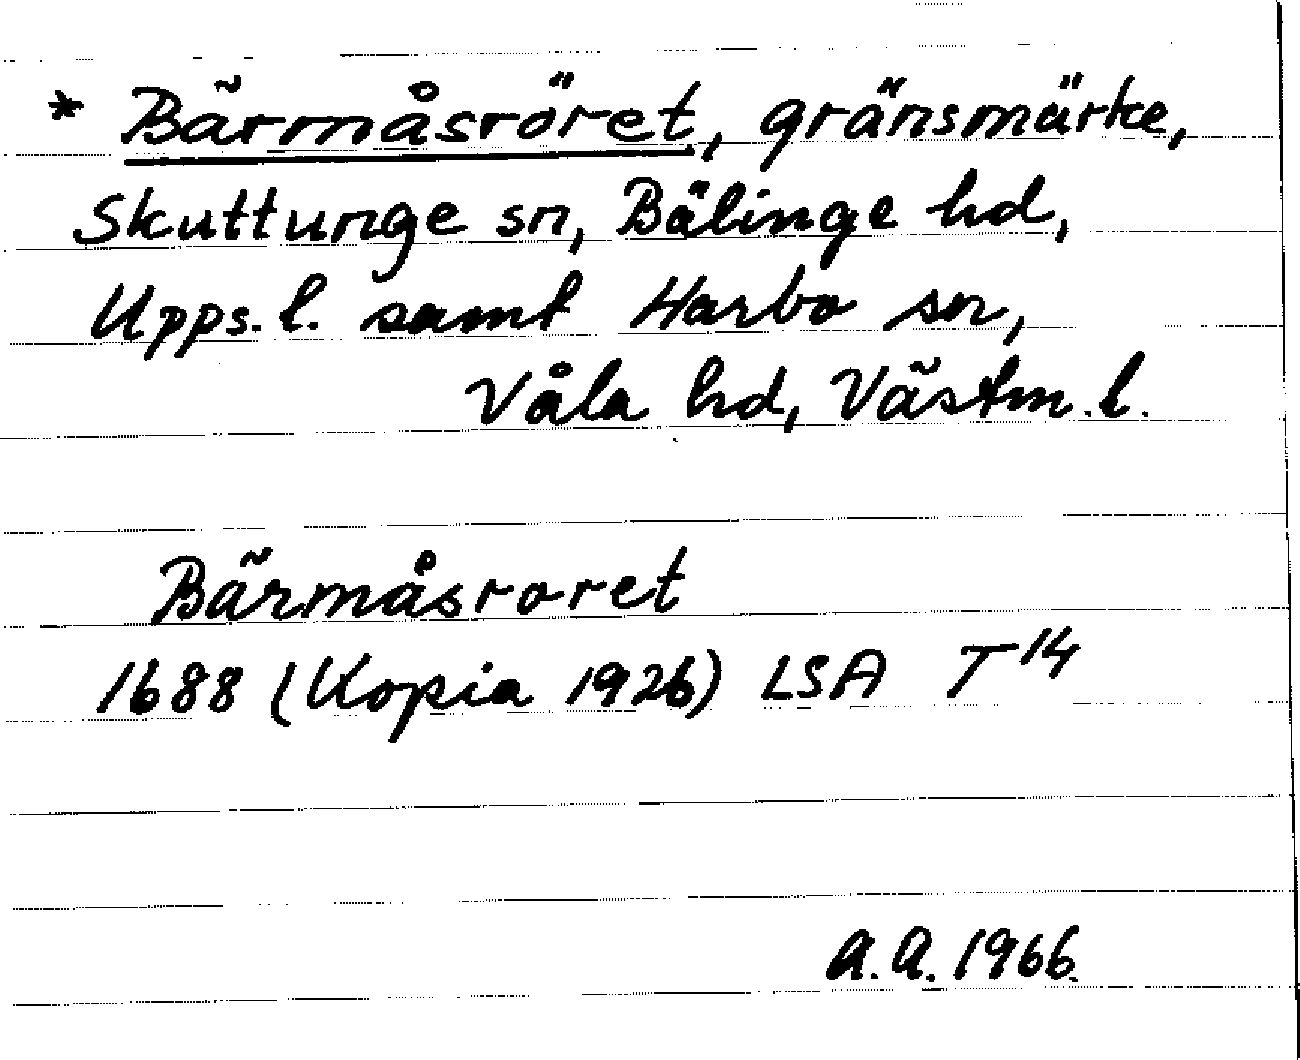 * Bärmåsröret, gränsmärke,
Skuttunge sn, Bälinge hd,
Upps. l. samt Harbo sn,
Våla hd, Västm. l.
Bärmåsroret
1688 (Kopia 1926) LSA T 14
A. A. 1966.